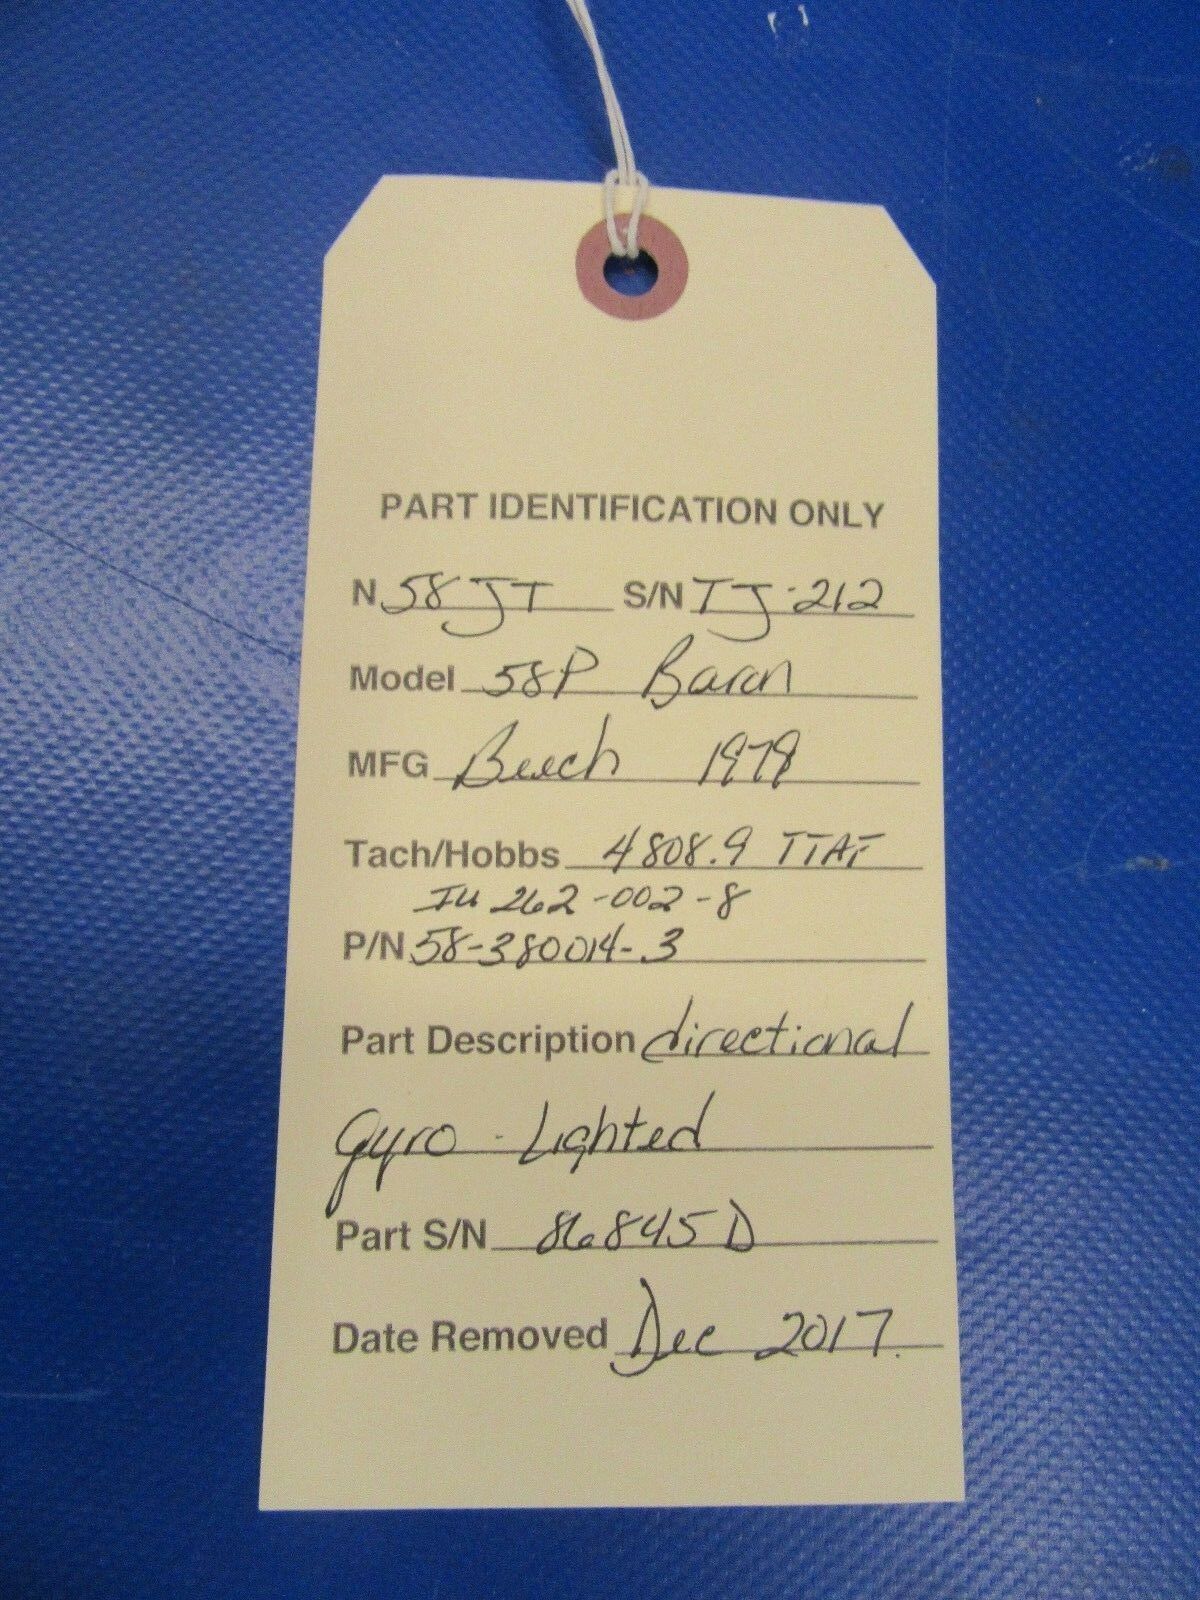 PART IDENTIFICATION ONLY
N 58JT S/N TJ-212
Model 58P Baron
MFG Beech 1979
Tach/Hobbs 4808.9 TTAF
IU 262-002-8
P/N 58-380014-3
Part Description directional
gyro - Lighted
Part S/N 86845D
Date Removed Dec 2017.